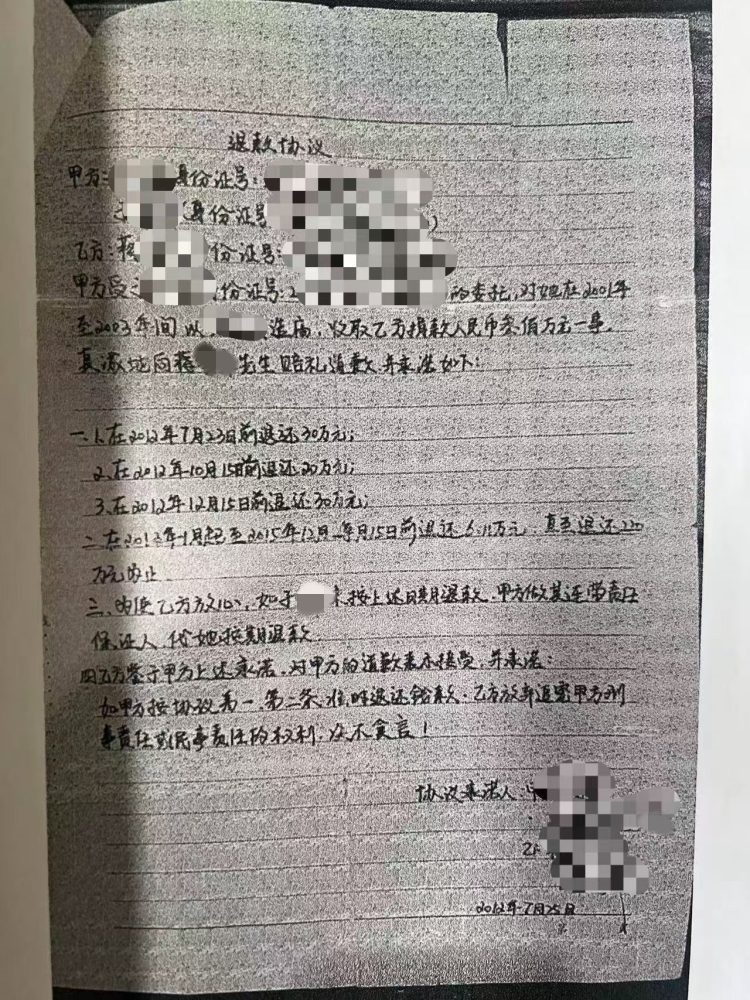 退款协议
甲方: 身份证号:
(身份证号 )
乙方:蒋 份证号:
甲方受 份证号:2 的委托,对她在2001年
至2003年间以 造庙,收取乙方捐款人民币叁佰万元一事
真诚地向蒋 先生赔礼道歉,并承诺如下:
一、1.在2012年7月23日前退还30万元;
2.在2012年10月15日前退还20万元;
3.在2012年12月15日前退还30万元;
二、在2013年1月起至2015年12月,每月15日前退还6.11万元,直至退还220
万元为止
三、为使乙方放心,如于 未按上述日期退款,甲方做其连带责任
保证人,代她按期退款
四、乙方鉴于甲方上述承诺,对甲方的道歉表示接受,并承诺:
如甲方按协议第一、第二条准时退还钱款,乙方放弃追究甲方刑
事责任或民事责任的权利,决不食言!
协议承诺人 甲
乙
2012年7月25日